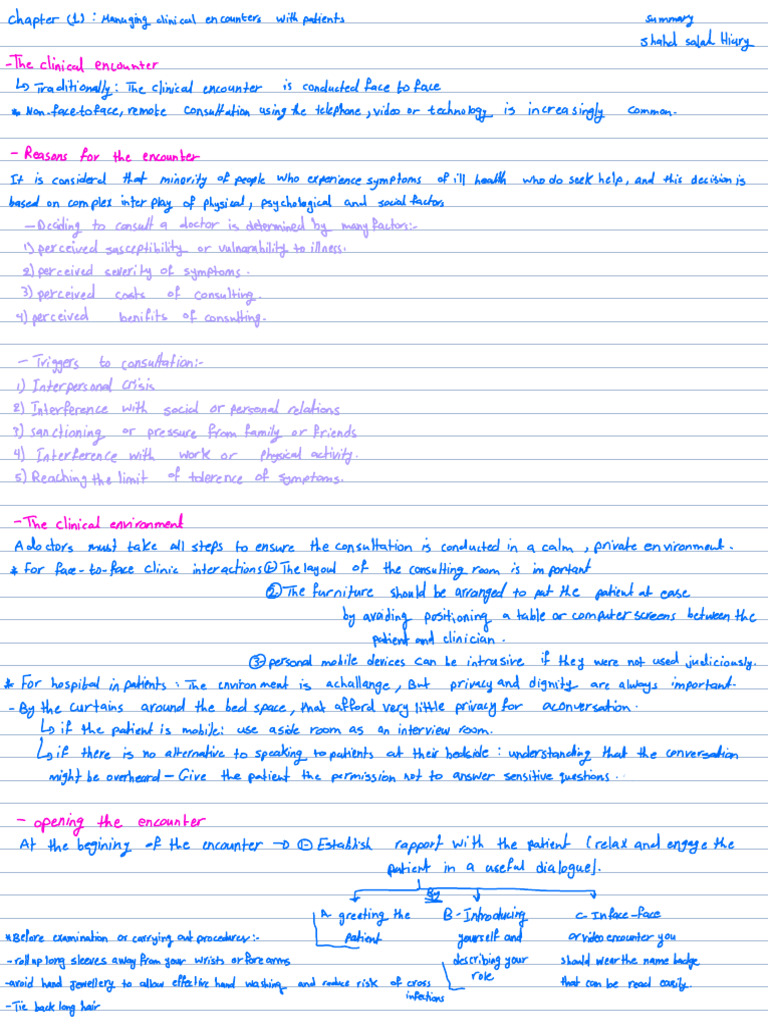 Chapter (1) : Managing clinical encounters with patients
summary
shahd salah Hiary
- The clinical encounter
↳ Traditionally : The clinical encounter is conducted face to face
* Non-face to face, remote consultation using the telephone, video or technology is increasingly common.
- Reasons for the encounter
It is considerd that minority of people who experience symptoms of ill health who do seek help, and this decision is
based on complex inter play of physical, psychological and social factors
- Deciding to consult a doctor is determined by many factors:-
1) perceived susceptibility or vulnarability to illness.
2) perceived severity of symptoms.
3) perceived costs of consulting.
4) perceived benifits of consulting.
- Triggers to consultation:-
1) Interpersonal crisis
2) Interference with social or personal relations
3) sanctioning or pressure from family or friends
4) Interference with work or physical activity.
5) Reaching the limit of tolerence of symptoms.
- The clinical environment
A doctors must take all steps to ensure the consultation is conducted in a calm, private environment.
* For face-to-face clinic interactions 1. The layout of the consulting room is important
2. The furniture should be arranged to put the patient at ease
by avoiding positioning a table or computer screens between the
patient and clinician.
3. personal mobile devices can be intrusive if they were not used judiciously.
* For hospital in patients : The environment is a challange, But privacy and dignity are always important.
- By the curtains around the bed space, that afford very little privacy for a conversation.
↳ if the patient is mobile: use a side room as an interview room.
↳ if there is no alternative to speaking to patients at their bedside : understanding that the conversation
might be overheard - Give the patient the permission not to answer sensitive questions.
- opening the encounter
At the begining of the encounter → 1- Establish rapport with the patient (relax and engage the
patient in a useful dialogue).
By
A- greeting the
patient
B- Introducing
yourself and
describing your
role
C- In face-face
or video encounter you
should wear the name badge
that can be read easily.
* Before examination or carrying out procedures:-
- roll up long sleeves away from your wrists or forearms
- avoid hand jewellery to allow effective hand washing and reduce risk of cross
infections
- Tie back long hair